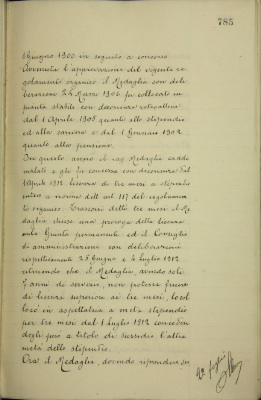 785
Giugno 1900 in seguito a concorso
Avvenuta l'approvazione del vigente re
golamento organico il Medaglia con deli
berazione 24 Marzo 1906 fu collocato in
pianta stabile con decorrenza retroattiva
dal 1 Aprile 1905 quanto allo stipendio
ed alla carriera e dal 1 Gennaio 1902
quanto alla pensione.
In questo anno il rag. Medaglia cadde
malato e gli fu concessa con decorrenza dal
1 Aprile 1912 licenza di tre mesi a stipendio
intero a norma dell'art. 117 del regolamen
to organico. Trascorsi detti tre mesi il Me
daglia chiese una proroga della licenza
e la Giunta permanente ed il Consiglio
di amministrazione con deliberazioni
rispettivamente 25 Giugno e 4 Luglio 1912
ritenendo che il Medaglia, avendo soli
7 anni di servizio, non poteva fruire
di licenza superiore ai tre mesi, lo col
locò in aspettativa a metà stipendio
per tre mesi dal 1 Luglio 1912 conceden
dogli però a titolo di sussidio l'altra
metà dello stipendio.
Ora il Medaglia, dovendo riprendere